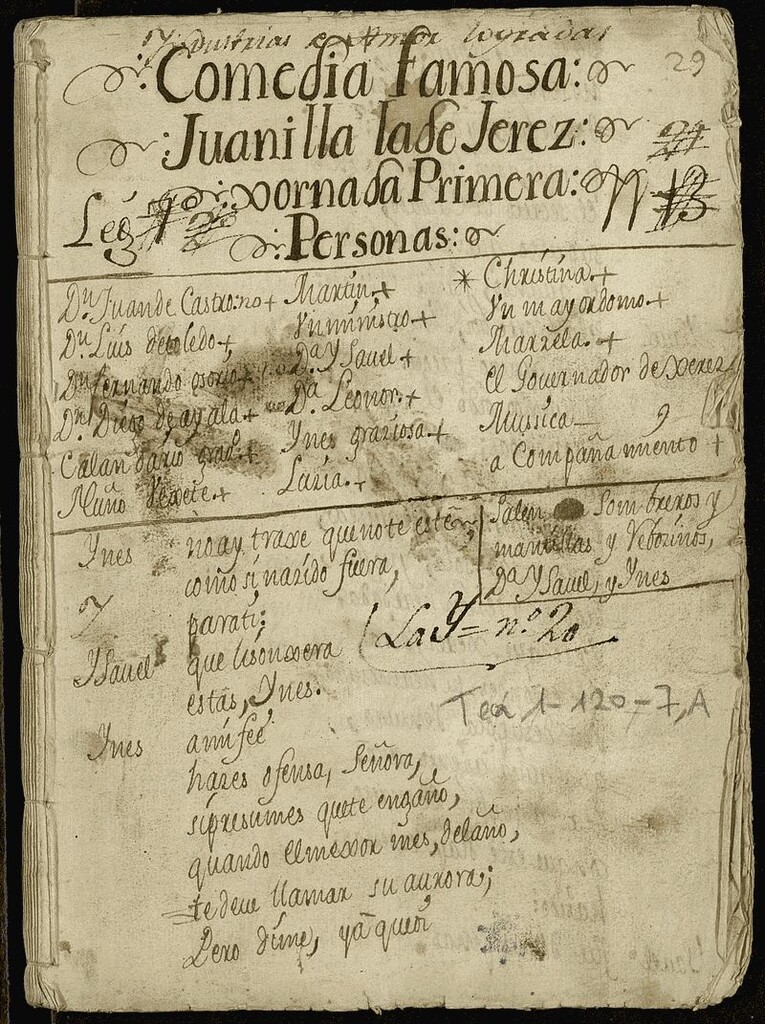 Yndustrias de Amor logradas
29
Comedia famosa:
:Juanilla la de Jerez:
:xornada Primera:
Leg
:Personas:
Dn. Juan de Castro:no + Martin.+ * Christina.+
Dn. Luis detoledo+ Vn ministro+ Vn mayordomo.+
Dn fernando osorio+ Da. YSavel + Marzela.+
Dn. Diego de ayala+ Da. Leonor.+ el Governador de xerez
Calandario graº.+ Ynes graziosa.+ Mussica
Nuño Vexete.+ Luzia.+ a Compañamiento +
Salen Sombreros y
mantillas y Rebozinos,
Da. YSavel, y Ynes
Ynes no ay traxe que no te esté
como si nazido fuera,
parati;
La Y= n.º 20
YSavel que lisonxera
estas, Ynes.
Tea 1-120-7,A
Ynes amifeé
hazes ofensa, Señora,
sipresumes quete engaño,
quando elmexor mes, delaño,
te deve llamar su aurora;
Pero dime, ya que oi